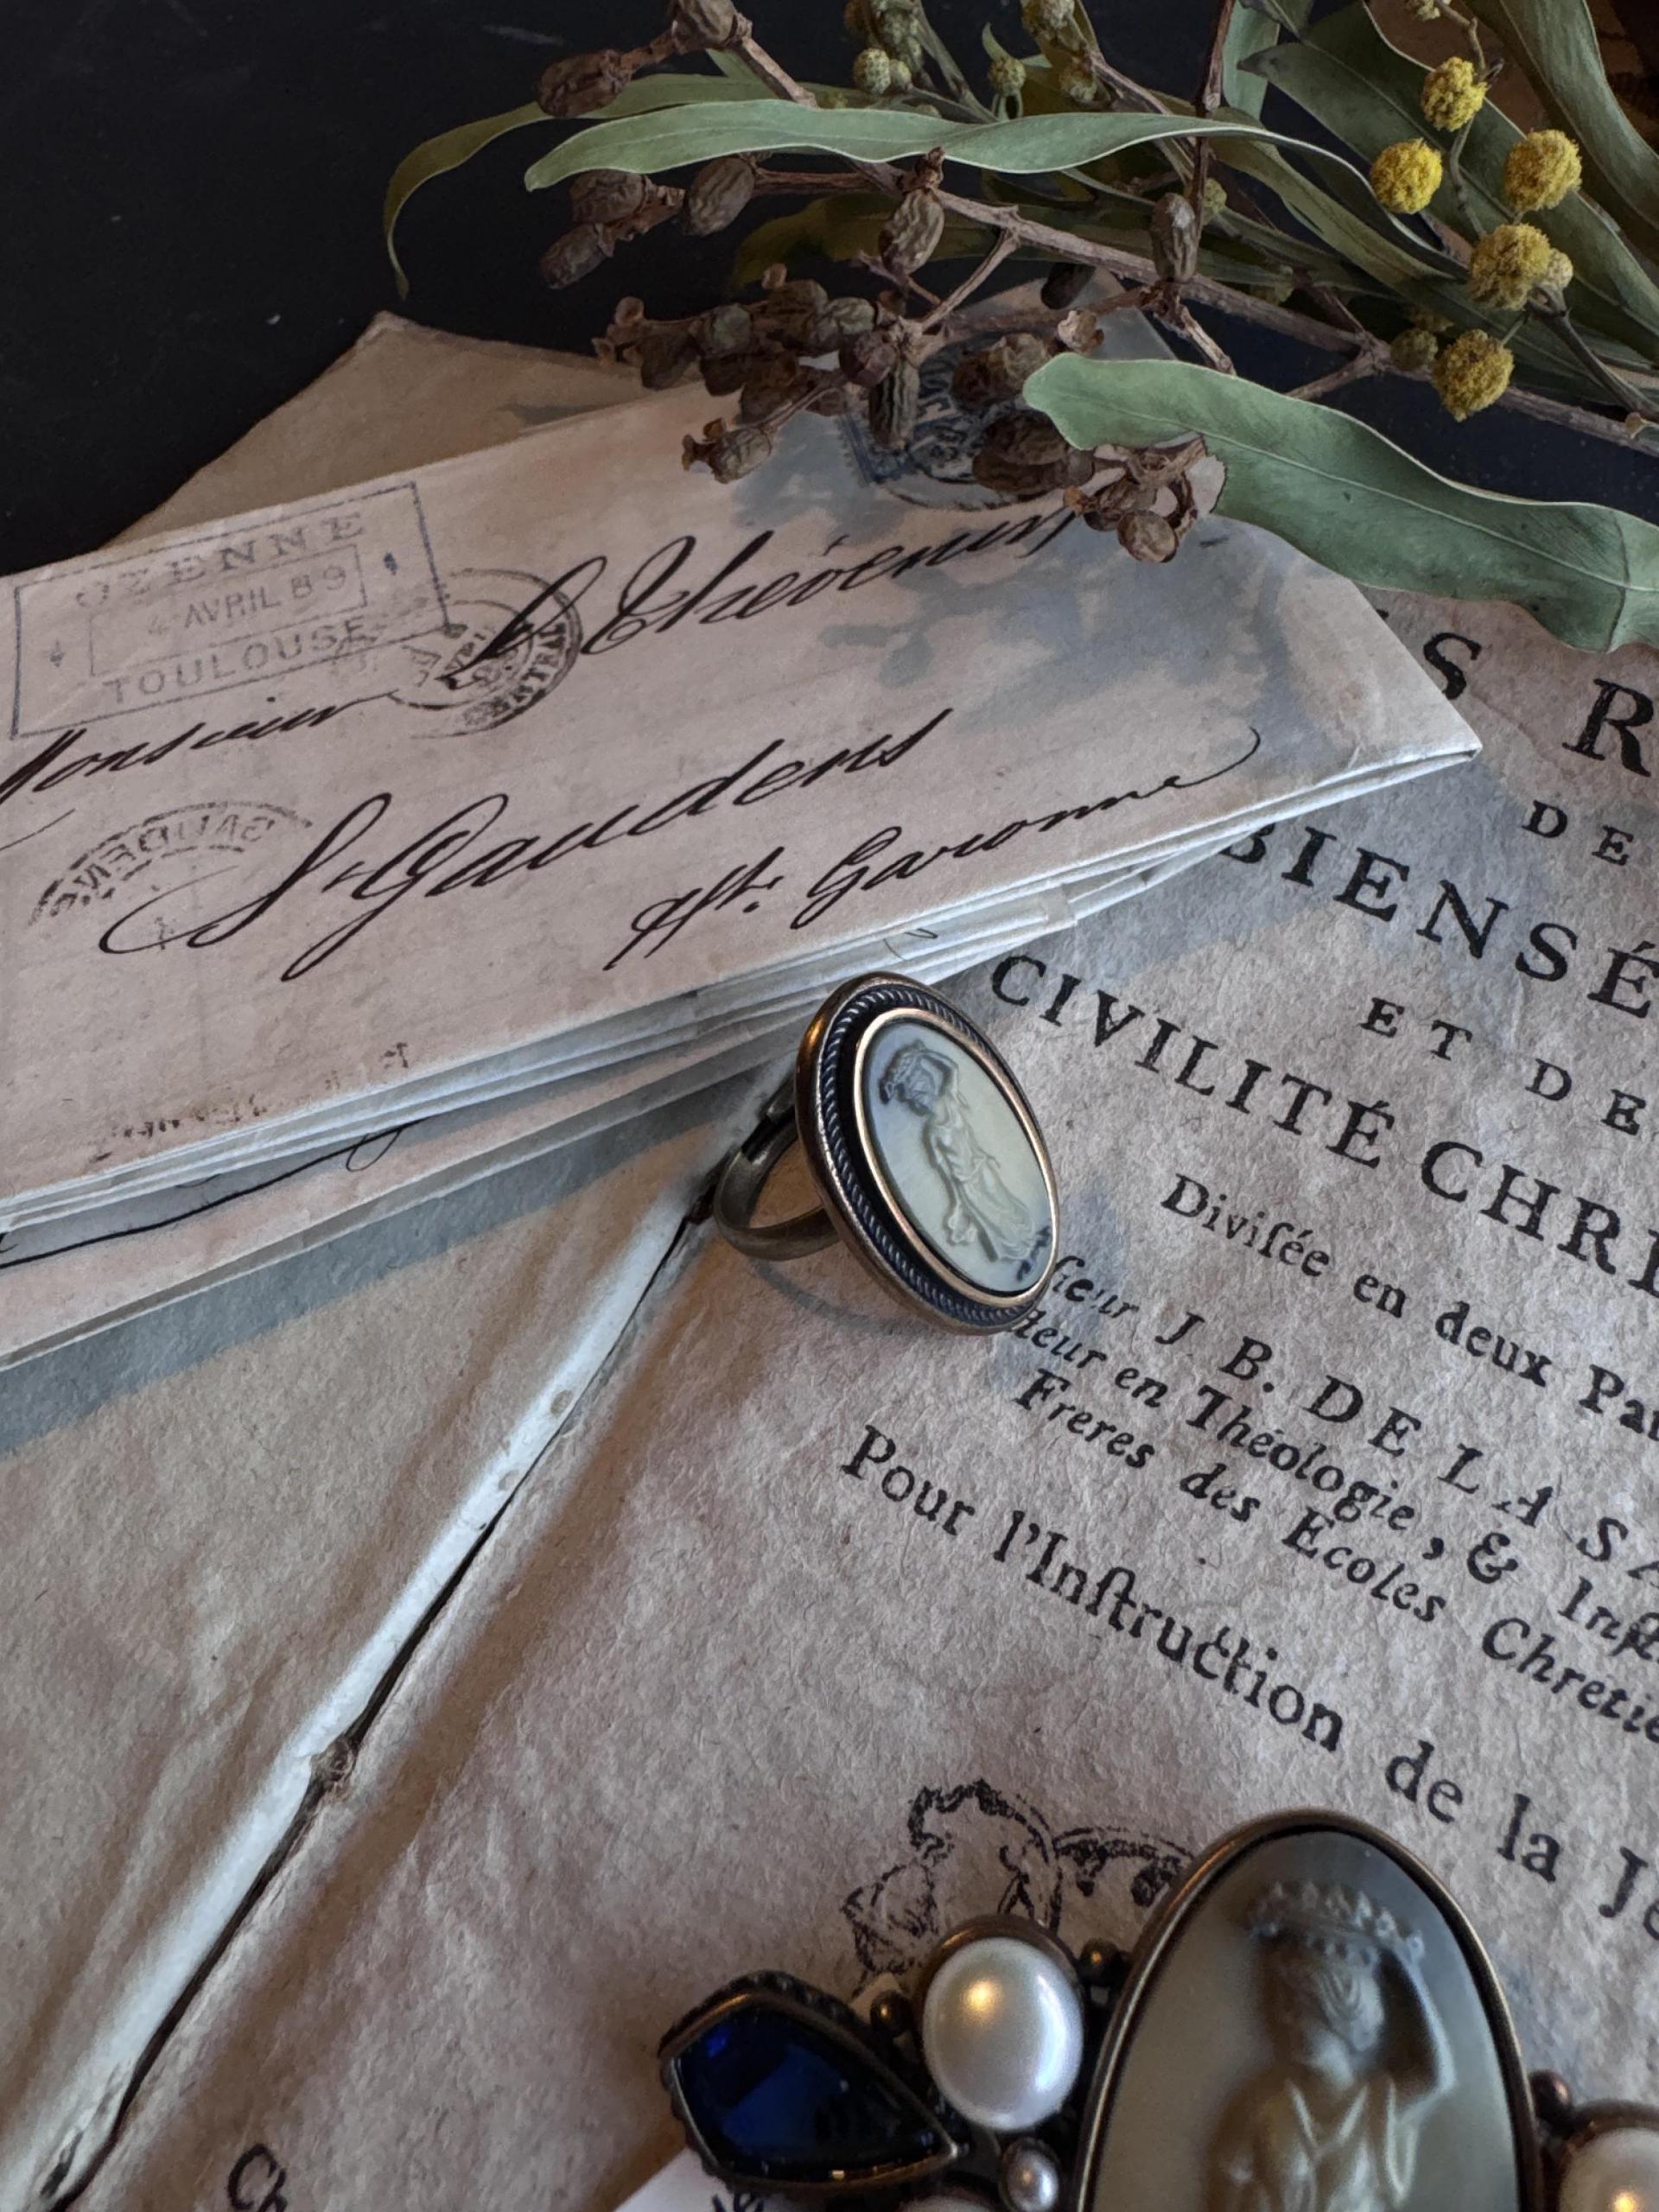 OZENNE
4 AVRIL 89
TOULOUSE
Monsieur
L Thévenin
GAUDENS
St Gaudens
Hte. Garonne
S R
DE
BIENSÉ
ET DE
CIVILITÉ CHRE
Diviſée en deux Par
ſieur J. B. DE LA SA
teur en Théologie, & Inſt
Freres des Ecoles Chrétie
Pour l'Inſtruction de la Je